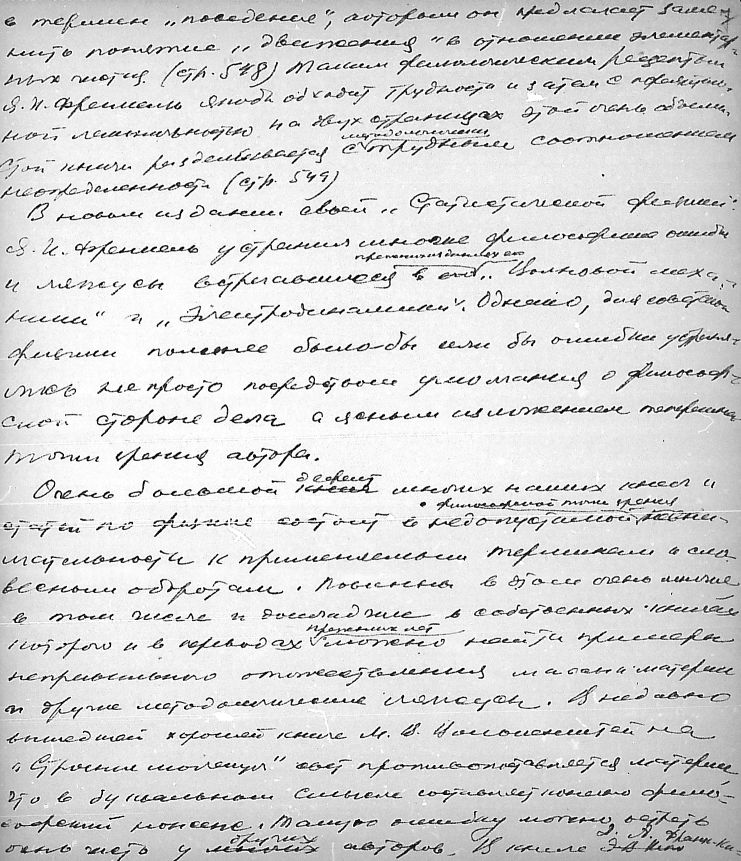 в термин „поведение", которым он предлагает заме-
нить понятие „движения" в отношении элементар-
ных частиц. (стр. 548) Таким филологическим рецептом
Я. И. Френкель якобы обходит трудности и затем с
ной лёгкостью на двух страницах этой очень
стой книги разделывается с методологически трудным соотношением
неопределенности (стр. 549)
В новом издании своей „Статистической физики"
Я. И. Френкель устранил многие философские ошибки
и ляпсусы встречавшиеся в „Волновой меха-
нике" и „Электродинамике". Однако, для советской
физики полезнее было бы если бы ошибки устраня-
лись не просто посредством умолчания о философ-
ской стороне дела а ясным изложением теперешней
точки зрения автора.
Очень большой дефект многих наших книг и
статей по физике состоит в недопустимой с философской точки зрения невни-
мательности к применяемым терминам и сло-
весным оборотам. Повинны в этом очень многие
в том числе и докладчик в собственных книгах
которого и в переводах прежних лет можно найти примеры
неправильного отожествления массы и материи
и другие методологические ляпсусы. В недавно
вышедшей хорошей книге М. В. Волькенштейна
„Строение молекул" свет противопоставляется материи
что в буквальном смысле составляет конечно фило-
софский нонсенс. Такую ошибку можно встретить
очень часто у других авторов. В книге Д. А. Франк-Ка-